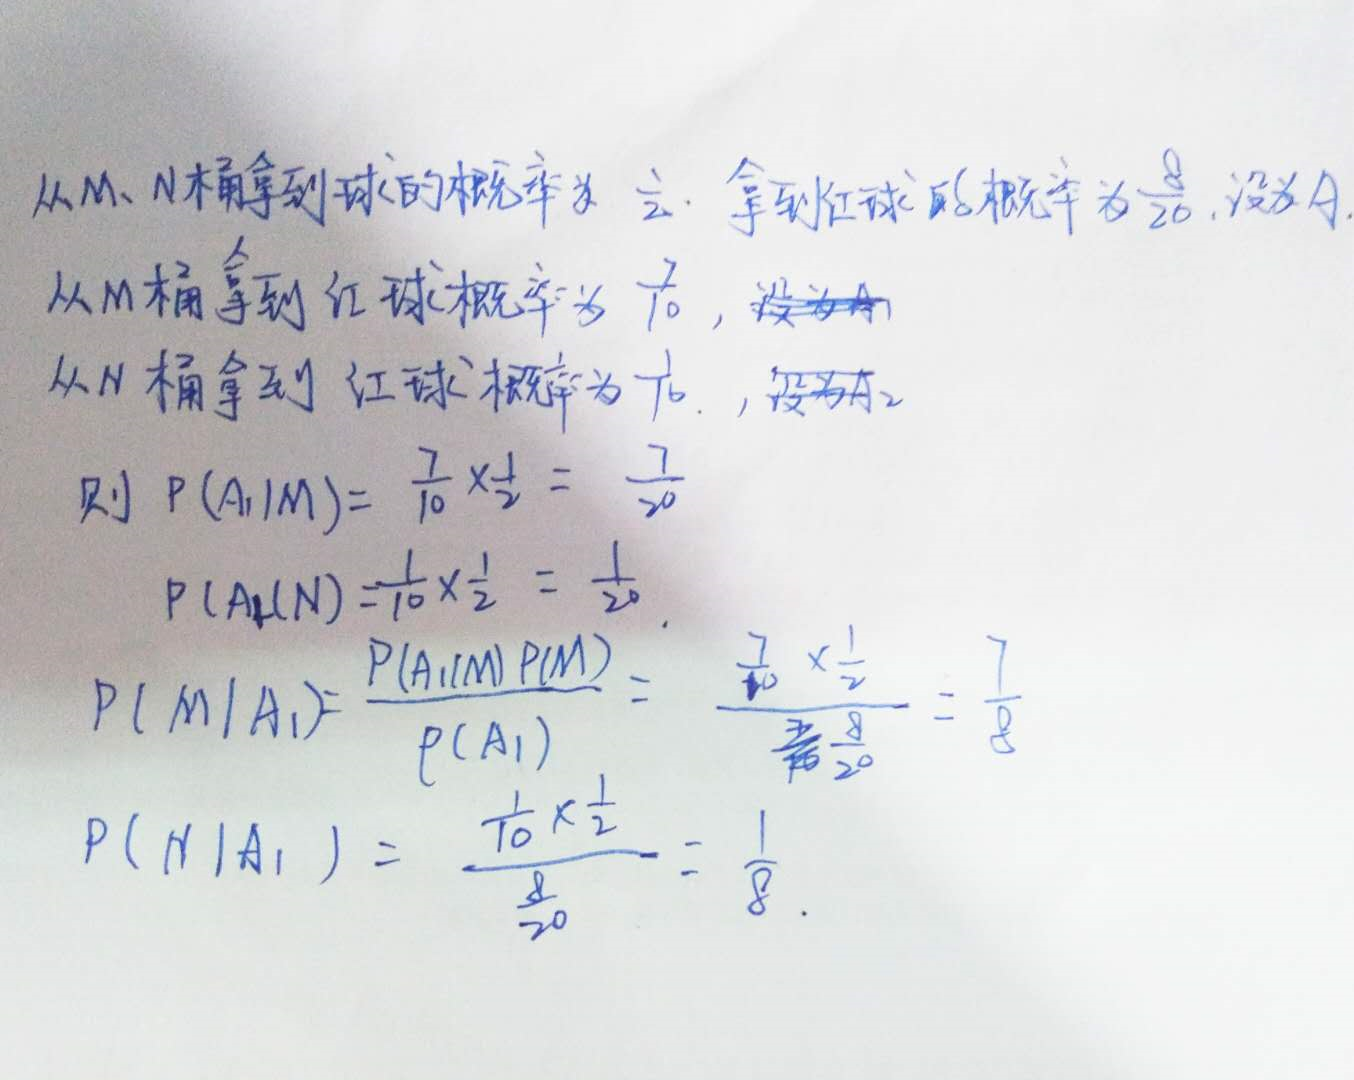 从M、N桶拿到球的概率为 1/2. 拿到红球的概率为 8/20, 设为A.
从M桶拿到红球概率为 7/10,
从N桶拿到红球概率为 1/10. , 设为A₂
则 P(A₁|M)= 7/10 × 1/2 = 7/20
P(A₁|N)= 1/10 × 1/2 = 1/20.
P(M|A₁)= P(A₁|M)P(M)/P(A₁) = (7/10 × 1/2)/(8/20) = 7/8
P(N|A₁) = (1/10 × 1/2)/(8/20) = 1/8.